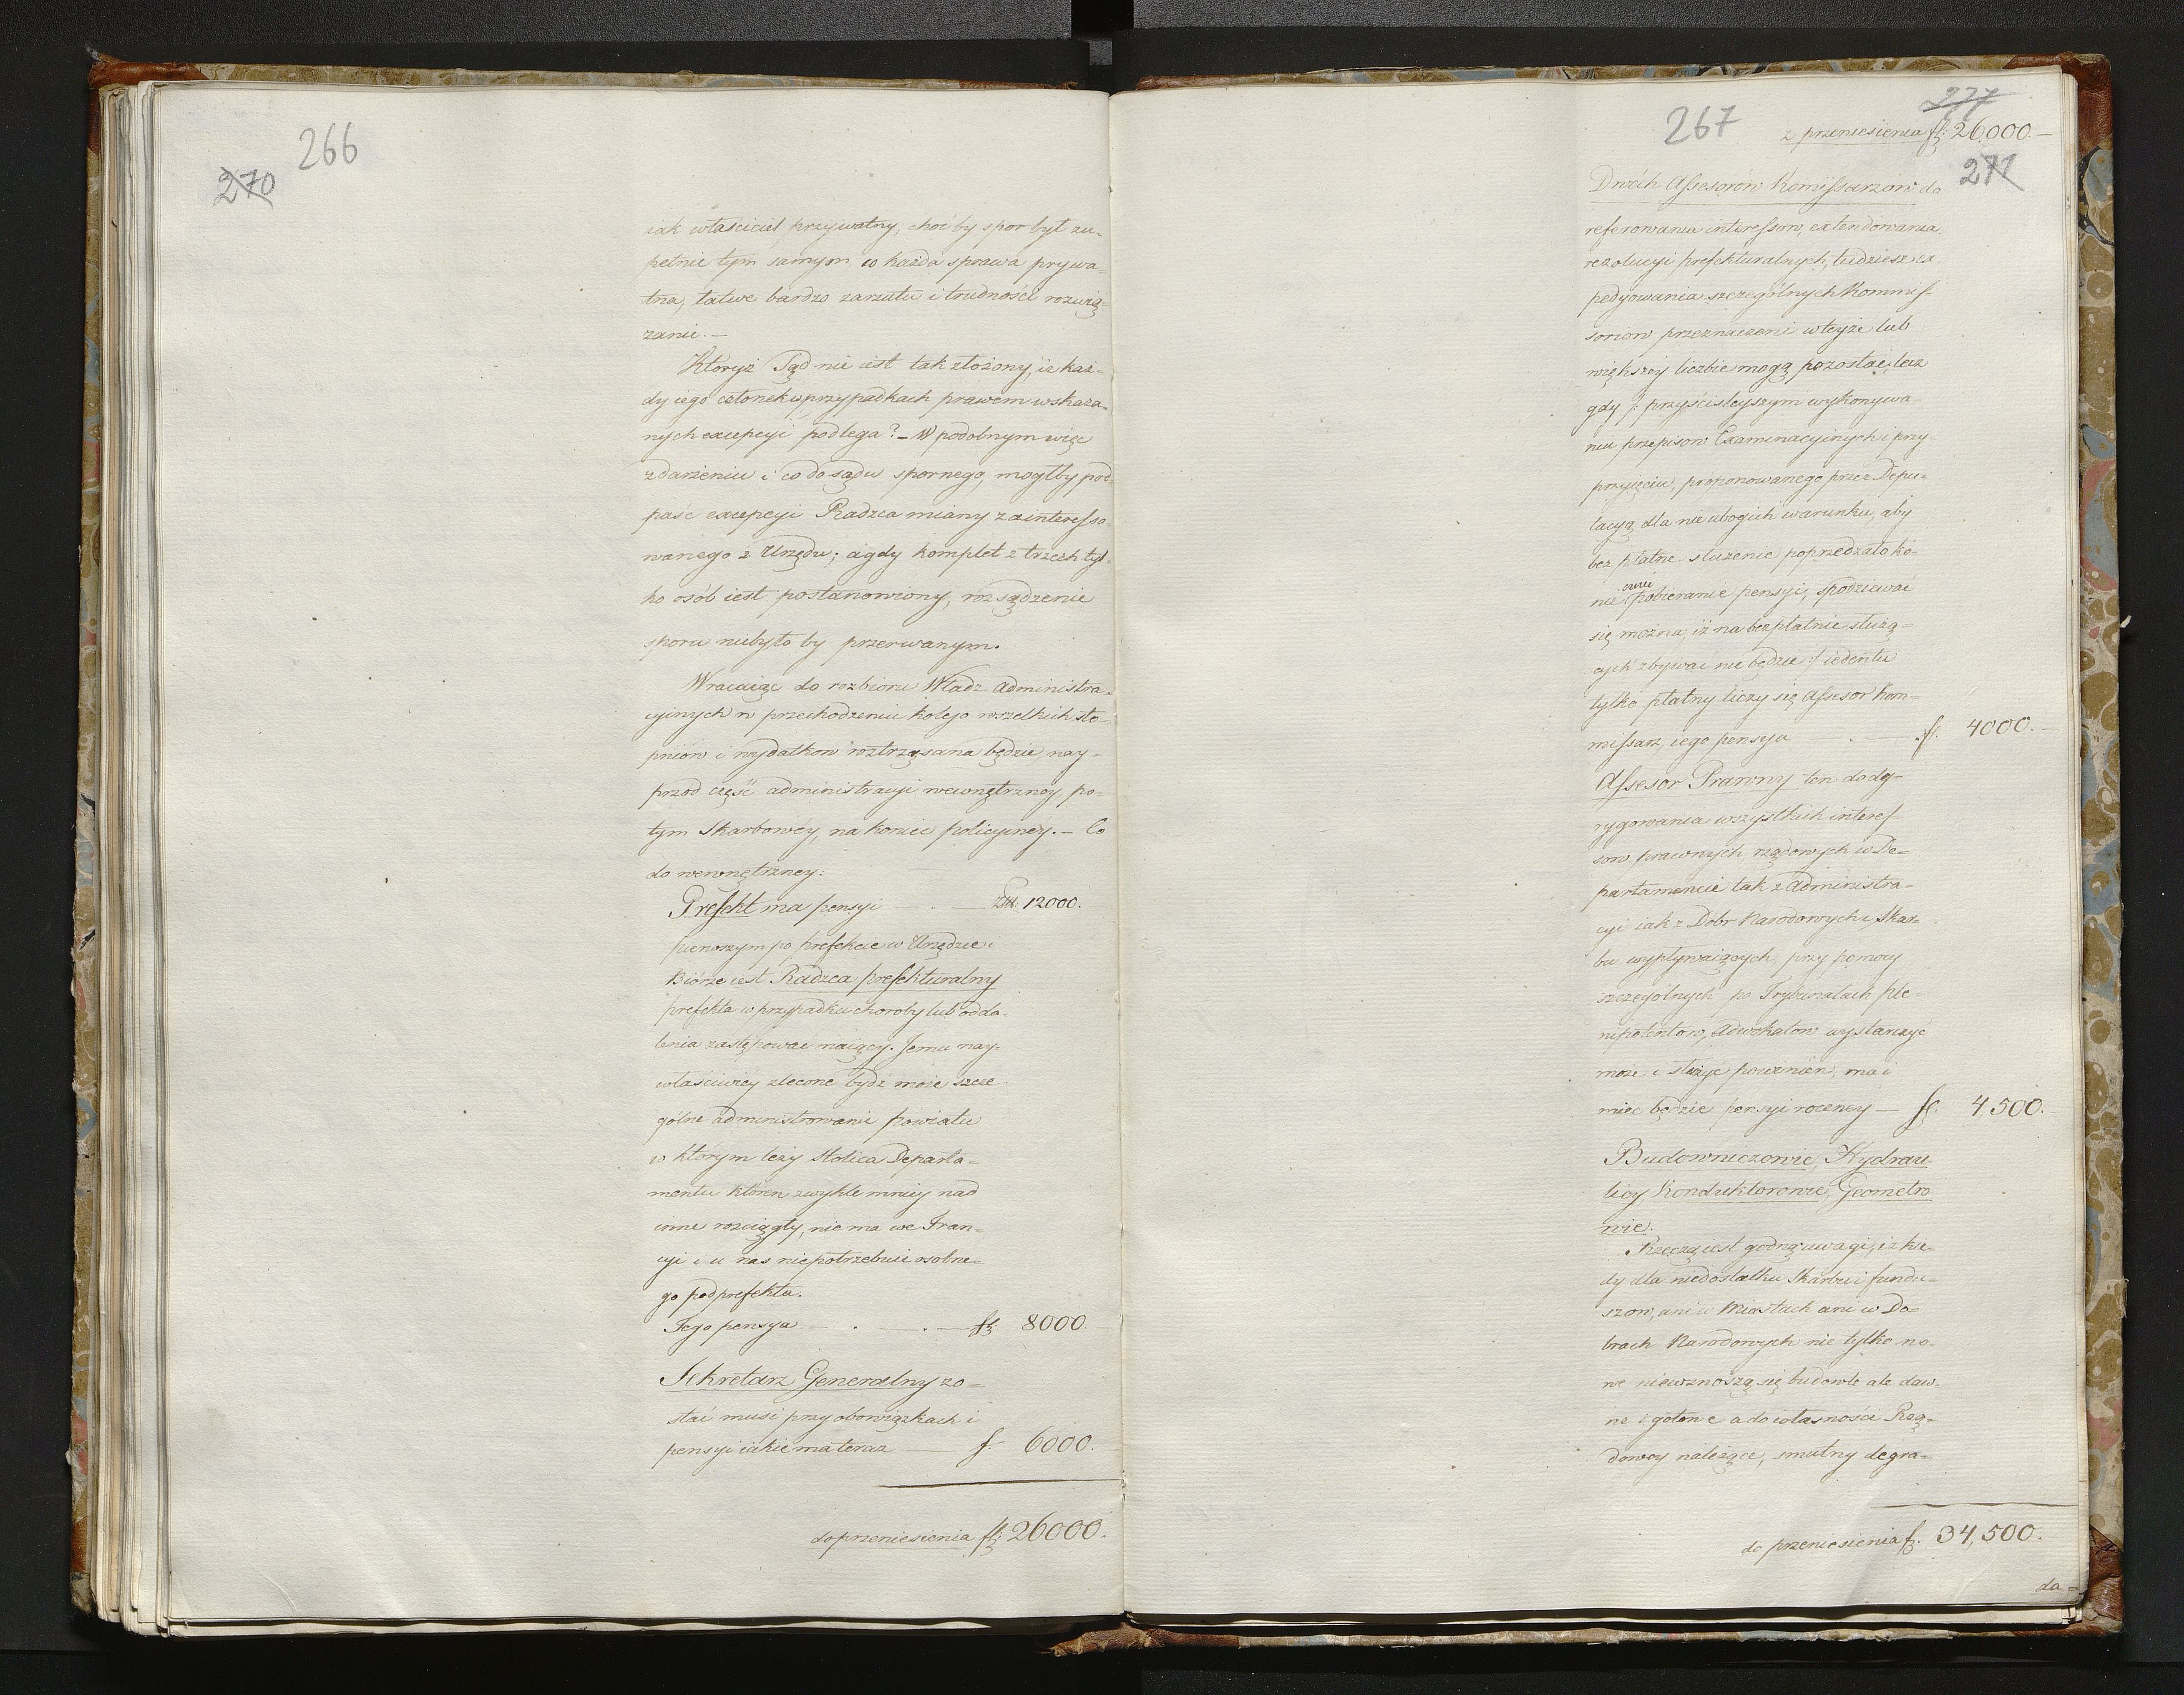 266
270
iak własciciel prywatny, choćby spor był zu-
pełnie tym samym co każda sprawa prywa-
tna, łatwe bardzo zarzutu i trudności rozwią-
zanie. –
Któryż Sąd nie iest tak złożony, iż każ-
dy iego członek w przypadkach prawem wskaza-
nych excepcyi podlega? – W podobnym więc
zdarzeniu i co do sądu spornego, mogłby pod-
paść excepcyi Radzca miany za interesso-
wanego z Urzędu; a gdy komplet z trzech tyl-
ko osób iest postanowiony, rozsądzenie
sporu niebyło by przerwanym.
Wracaiąc do rozbioru Władz Administra-
cyinych w przechodzeniu koleją wszelkich sto-
pniow i wydatkow roztrząsana będzie, nay-
przod część administracyi wewnętrzney, po-
tym Skarbowéy, na koniec policyinéy. – Co
do wewnętrzney:
Prefekt ma pensyi — . — Złł. 12000.
pierwszym po prefekcie w Urzędzie i
Biórze iest Radzca prefekturalny
prefekta w przypadku choroby lub odda-
lenia zastępować maiący. Jemu nay-
właściwiey zlecone bydź może szcze-
gólne administrowanie powiatu
w którym leży Stolica Departa-
mentu któren zwykle mniey nad
inne rozciągły, nie ma we Fran-
cyi i u nas nie potrzebuie osobne-
go podprefekta.
Jego pensya — . — . — fl: 8000. —
Sekretarz Generalny zo-
stać musi przy obowiązkach i
pensyi iakie ma teraz — f. 6000. —
do przeniesienia fl: 26000.
267
277
z przeniesienia fl: 26.000. —
271
Dwóch Assesorow Kommissarzow do
referowania interessow, extendowania
rezolucyi prefekturalnych, tudziesz ex-
pedyowania szczególnych Kommis-
soriow przeznaczeni w teyże lub
większey liczbie mogą pozostać, lecz
gdy /: przy ścisleyszym wykonywa-
niu przepisow Examinacyinych i przy
przyięciu, proponowanego przez Depu-
tacyą dla nie ubogich warunku, aby
bez płatne służenie poprzedzało ko-
niecznie pobieranie pensyi, spodziewać
się można, iż na bezpłatnie służą-
cych zbywać nie będzie :/ ieden tu
tylko płatny liczy się Assesor Kom-
missarz, iego pensya — . — fl. 4000. —
Assesor Prawny ten do dy-
rygowania wszystkich interes-
sow prawnych, rządowych w De-
partamencie tak z Administra-
cyi iak z Dobr Narodowych i Skar-
bu wypływaiących, przy pomocy
szczególnych po Trybunałach ple-
nipotentow, Adwokatow wystarczyć
może i służyć powinien, ma i
mieć będzie pensyi roczney — fl. 4500.
Budowniczowie, Hydrau-
licy Konduktorowie, Geometro-
wie.
Rzeczą iest godną uwagi, iż kie-
dy dla niedostatku Skarbu i fundu-
szow, ani w Miastach ani w Do-
brach Narodowych nie tylko no-
we niewznoszą się budowle ale daw-
ne i gotowe a do własności Rzą-
dowey należące, smutny degra-
do przeniesienia f. 34,500.
da-